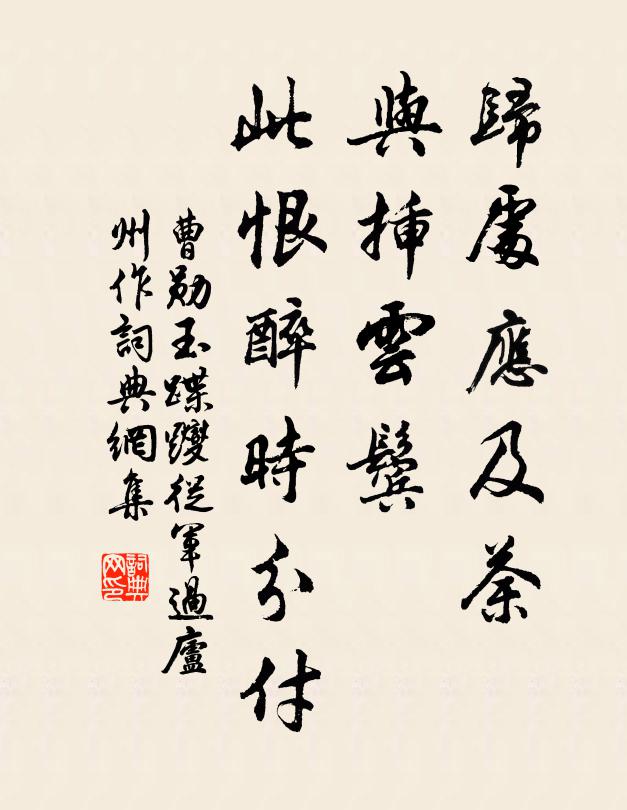 歸處應及荼
與插雲鬢
此恨醉時分付
曹勛玉蹀躞從軍過廬
州作詞典網集
詞典网印